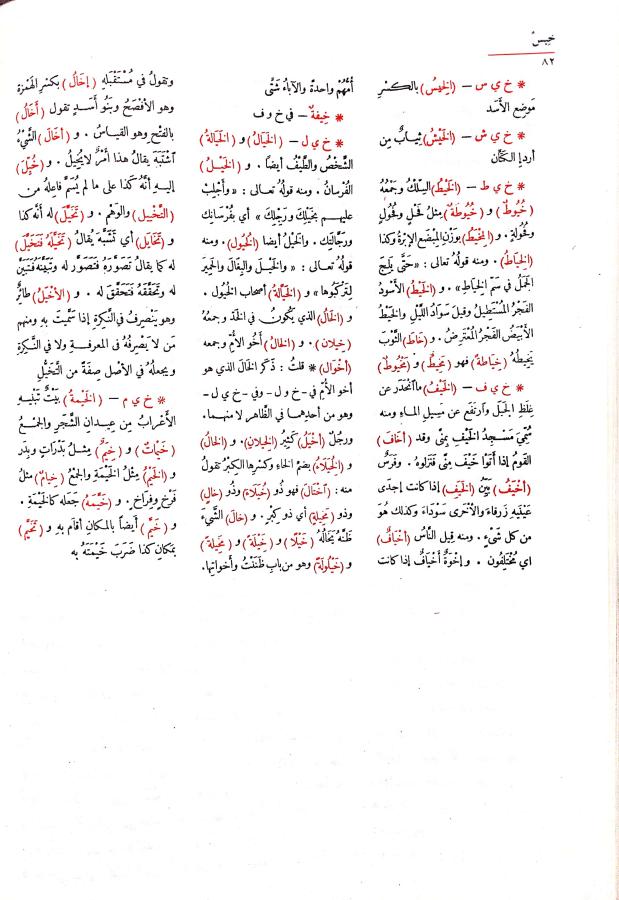 خيسٌ
٨٢
* خ ي س – (الخِيسُ) بالكسرِ
مَوضِع الأَسَد
* خ ي ش – (الخَيْشُ) ثِيابٌ مِن
أردإ الكَتَّان
* خ ي ط – (الخَيْطُ) السِّلْكُ وجَمْعُهُ
(خُيُوطٌ) و (خُيُوطَةٌ) مِثْلُ فَحْلٍ وفُحُولٍ
وفُحُولَةٍ . و (المِخْيَطُ) بوزنِ المِبْضَعِ الإِبْرَةُ وكذا
(الخِيَاطُ) . ومنه قولُهُ تعالى : «حَتَّى يَلِجَ
الجَمَلُ في سَمِّ الخِيَاطِ» . و (الخَيْطُ) الأَسْوَدُ
الفَجْرُ المُسْتَطِيلُ وقيلَ سَوَادُ اللَّيْلِ والخَيْطُ
الأَبْيَضُ الفَجْرُ المُعْتَرِضُ . و (خَاطَ) الثَّوْبَ
يَخِيطُهُ (خِيَاطَةً) فهو (مَخِيطٌ) و (مَخْيُوطٌ)
* خ ي ف – (الخَيْفُ) ما انْحَدَرَ عن
غِلَظِ الجَبَلِ وارْتَفَعَ عن مَسِيلِ الماءِ ومنه
سُمِّيَ مَسْجِدُ الخَيْفِ بِمِنًى وقد (أَخَافَ)
القومُ إذا أَتَوْا خَيْفَ مِنًى فَنَزَلُوهُ . وفَرَسٌ
(أَخْيَفُ) بَيِّنُ (الخَيَفِ) إذا كانت إحدَى
عَيْنَيهِ زَرقاءَ والأُخرى سَوْداءَ وكذلك هُوَ
من كلِّ شَيْءٍ . ومنه قِيلَ الناسُ (أَخْيَافٌ)
اي مُخْتَلِفُون . وإخْوَةٌ أَخْيَافٌ إذا كانت
أُمُّهُمْ واحدةً والآباءُ شَتَّى
* خِيفَةٌ – في خ و ف
* خ ي ل – (الخَيَالُ) و (الخَيَالَةُ)
الشَّخْصُ والطَّيْفُ أيضًا . و (الخَيْلُ)
الفُرْسانُ . ومنه قولُهُ تعالى : «وأَجْلِبْ
عليهم بِخَيْلِكَ ورَجِلِكَ» أي بفُرْسَانِك
ورَجَّالَتِك . والخَيْلُ أيضا (الخُيُولُ) . ومنه
قولُهُ تعالى : «والخَيْلَ والبِغَالَ والحَمِيرَ
لِتَرْكَبُوها» و (الخَيَّالَةُ) أصحابُ الخُيُولِ .
و (الخَالُ) الذي يَكُونُ في الخَدِّ وجمعُهُ
(خِيلان) . و (الخَالُ) أخُو الأُمِّ وجمعه
(أَخْوَال) * قلتُ : ذَكَرَ الخَالَ الذي هو
أخو الأُمِّ في – خ و ل – وفي – خ ي ل –
وهو من أحدِهِما في الظَّاهر لا منهما.
ورجُلٌ (أَخْيَلُ) كَثِيرُ (الخِيلَانِ) . و (الخَالُ)
و (الخُيَلَاءُ) بضمِّ الخاء وكسرِها الكِبْرُ تقولُ
منه : (آخْتَالَ) فهو ذُو (خُيَلَاءَ) وذُو (خَالٍ)
وذو (مَخِيلَةٍ) أي ذو كِبْرٍ . و (خَالَ) الشَّيْءَ
ظَنَّهُ يَخَالُهُ (خَيْلًا) و (خَيْلَةً) و (مَخِيلَةً)
و (خَيْلُولَةً) وهو من باب ظَنَنْتُ وأخواتِها.
وتقولُ في مُسْتَقْبَلِهِ (إخَالُ) بكسر الهَمْزة
وهو الأَفْصَحُ وبَنُو أَسَدٍ تقول (أَخَالُ)
بالفَتْحِ وهو القِياسُ . و (أخَالَ) الشَّيْءُ
آشْتَبَهَ يقالُ هذا أَمْرٌ لا يُخِيلُ . و (خُيِّلَ)
إليهِ أنَّهُ كَذَا على ما لم يُسَمَّ فاعِلُهُ من
(التَّخْيِيلِ) والوَهْمِ . و (تَخَيَّلَ) له أنَّهُ كذا
و (تَخَايَلَ) أي تَشَبَّهَ يُقالُ (تَخَيَّلَهُ فَتَخَيَّلَ)
له كما يقالُ تَصَوَّرَهُ فتَصَوَّرَ له وتَبَيَّنَهُ فتَبَيَّنَ
له وتَحَقَّقَهُ فتَحَقَّقَ له . و (الأَخْيَلُ) طائِرٌ
وهو يَنْصَرِفُ في النَّكِرَةِ إذا سَمَّيْتَ بهِ ومنهم
مَن لا يَصْرِفُهُ في المعرفةِ ولا في النَّكِرةِ
ويجعلُهُ في الأصْلِ صِفَةً من التَّخَيُّلِ
* خ ي م – (الخَيْمَةُ) بَيْتٌ تَبْنِيهِ
الأَعْرَابُ من عِيدانِ الشَّجَرِ والجمْعُ
(خَيْمَات) و (خِيَمٌ) مِثْلُ بَدْرَاتٍ وبِدَرٍ
و (الخَيْمُ) مِثْلُ الخَيْمَةِ والجمْعُ (خِيامٌ) مثلُ
فَرْخٍ وفِرَاخٍ . و (خَيَّمَهُ) جَعَلَه كالخَيْمَةِ .
و (خَيَّمَ) أيضاً بالمكانِ أقام بهِ و (تَخَيَّمَ)
بمكانِ كذا ضَرَبَ خَيْمَتَهُ به